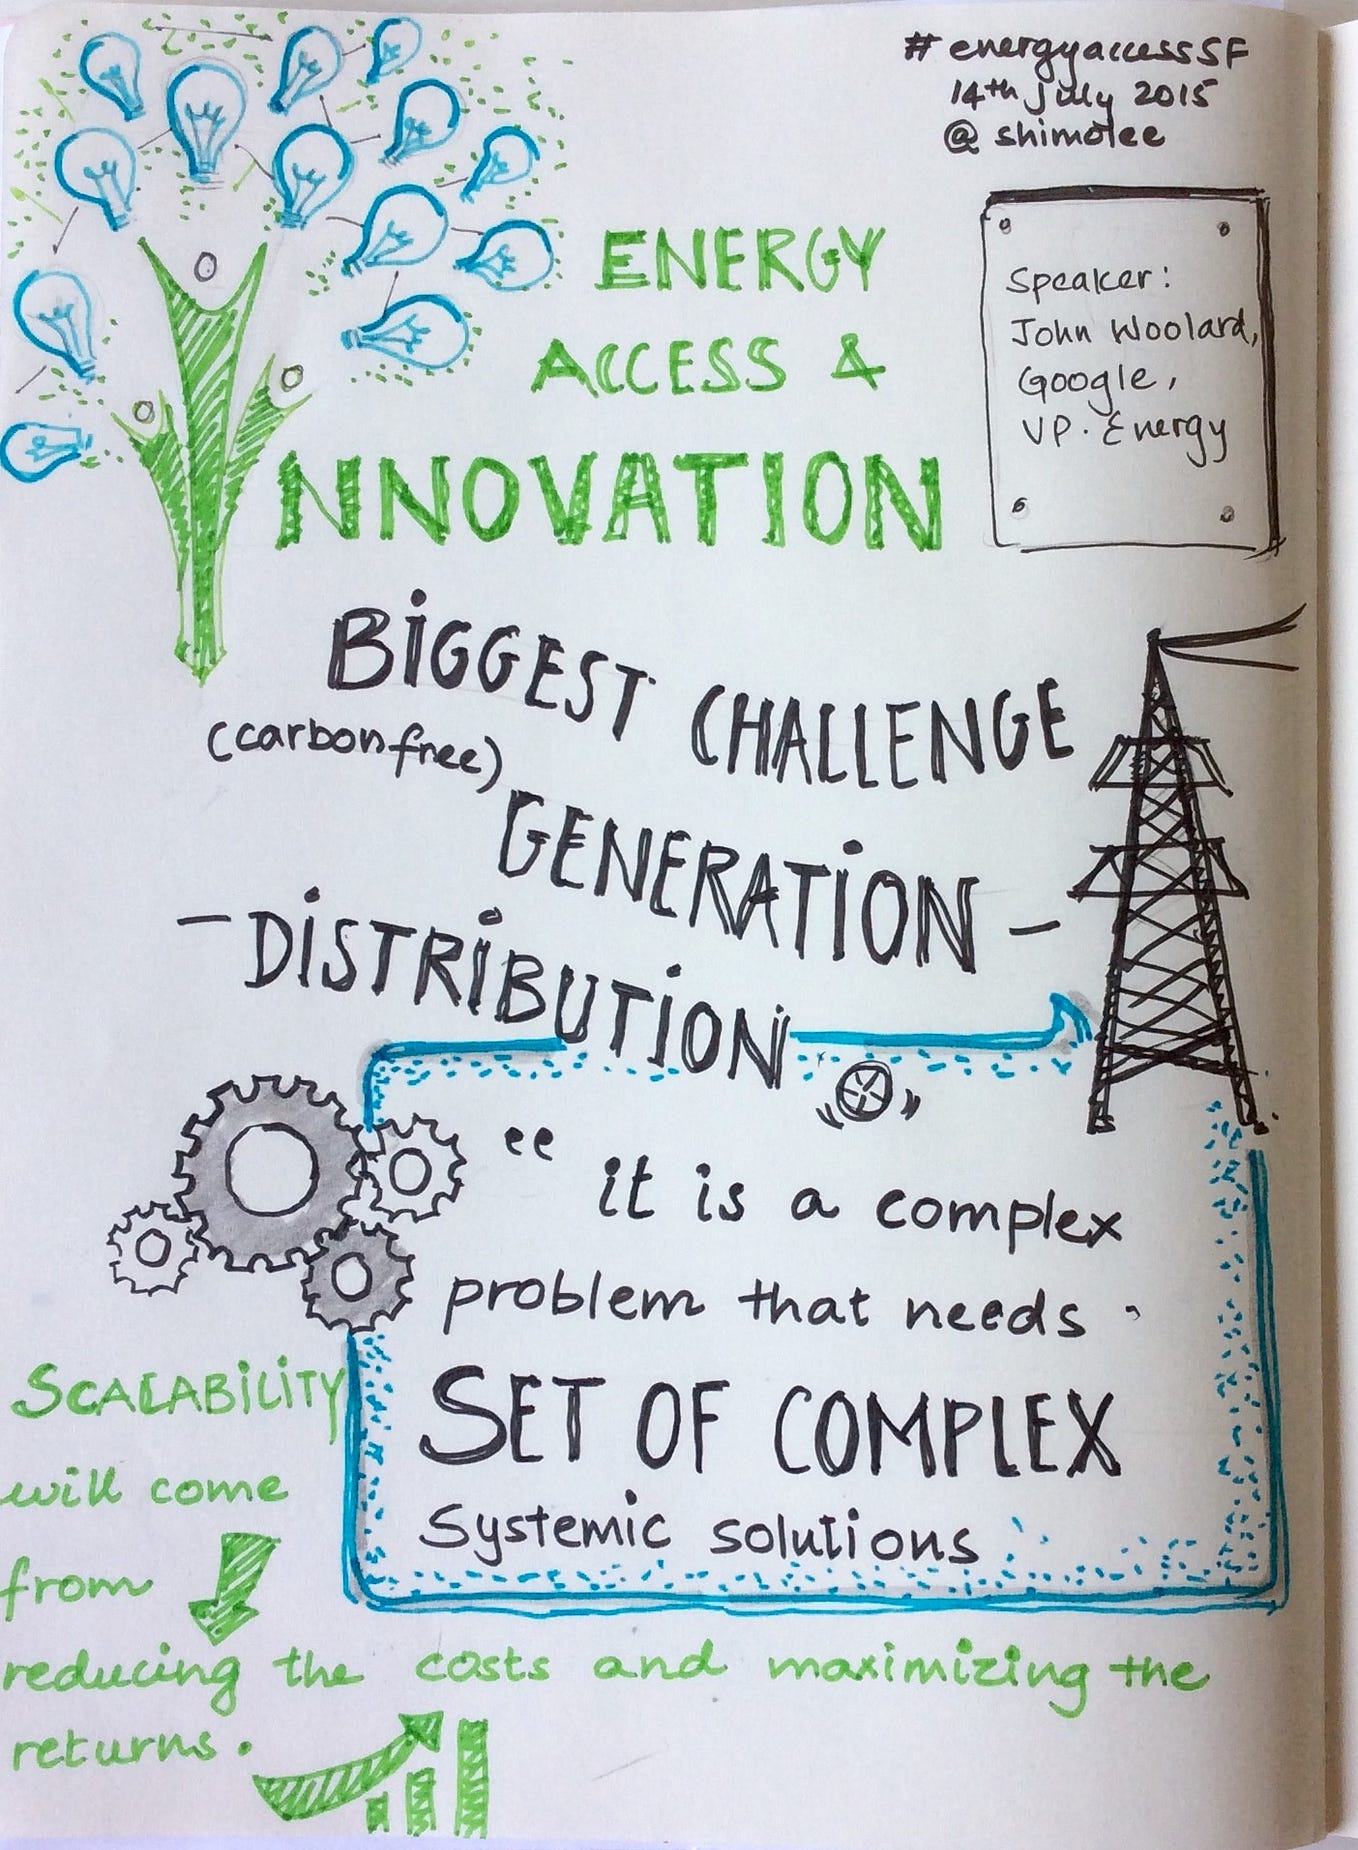 # energyaccessSF
14th July 2015
@ shimolee
ENERGY
ACCESS &
INNOVATION
Speaker:
John Woolard,
Google,
VP. Energy
BIGGEST CHALLENGE
(carbonfree)
GENERATION -
- DISTRIBUTION
“ it is a complex
problem that needs
SET OF COMPLEX
Systemic solutions
SCALABILITY
will come
from
reducing the costs and maximizing the
returns.